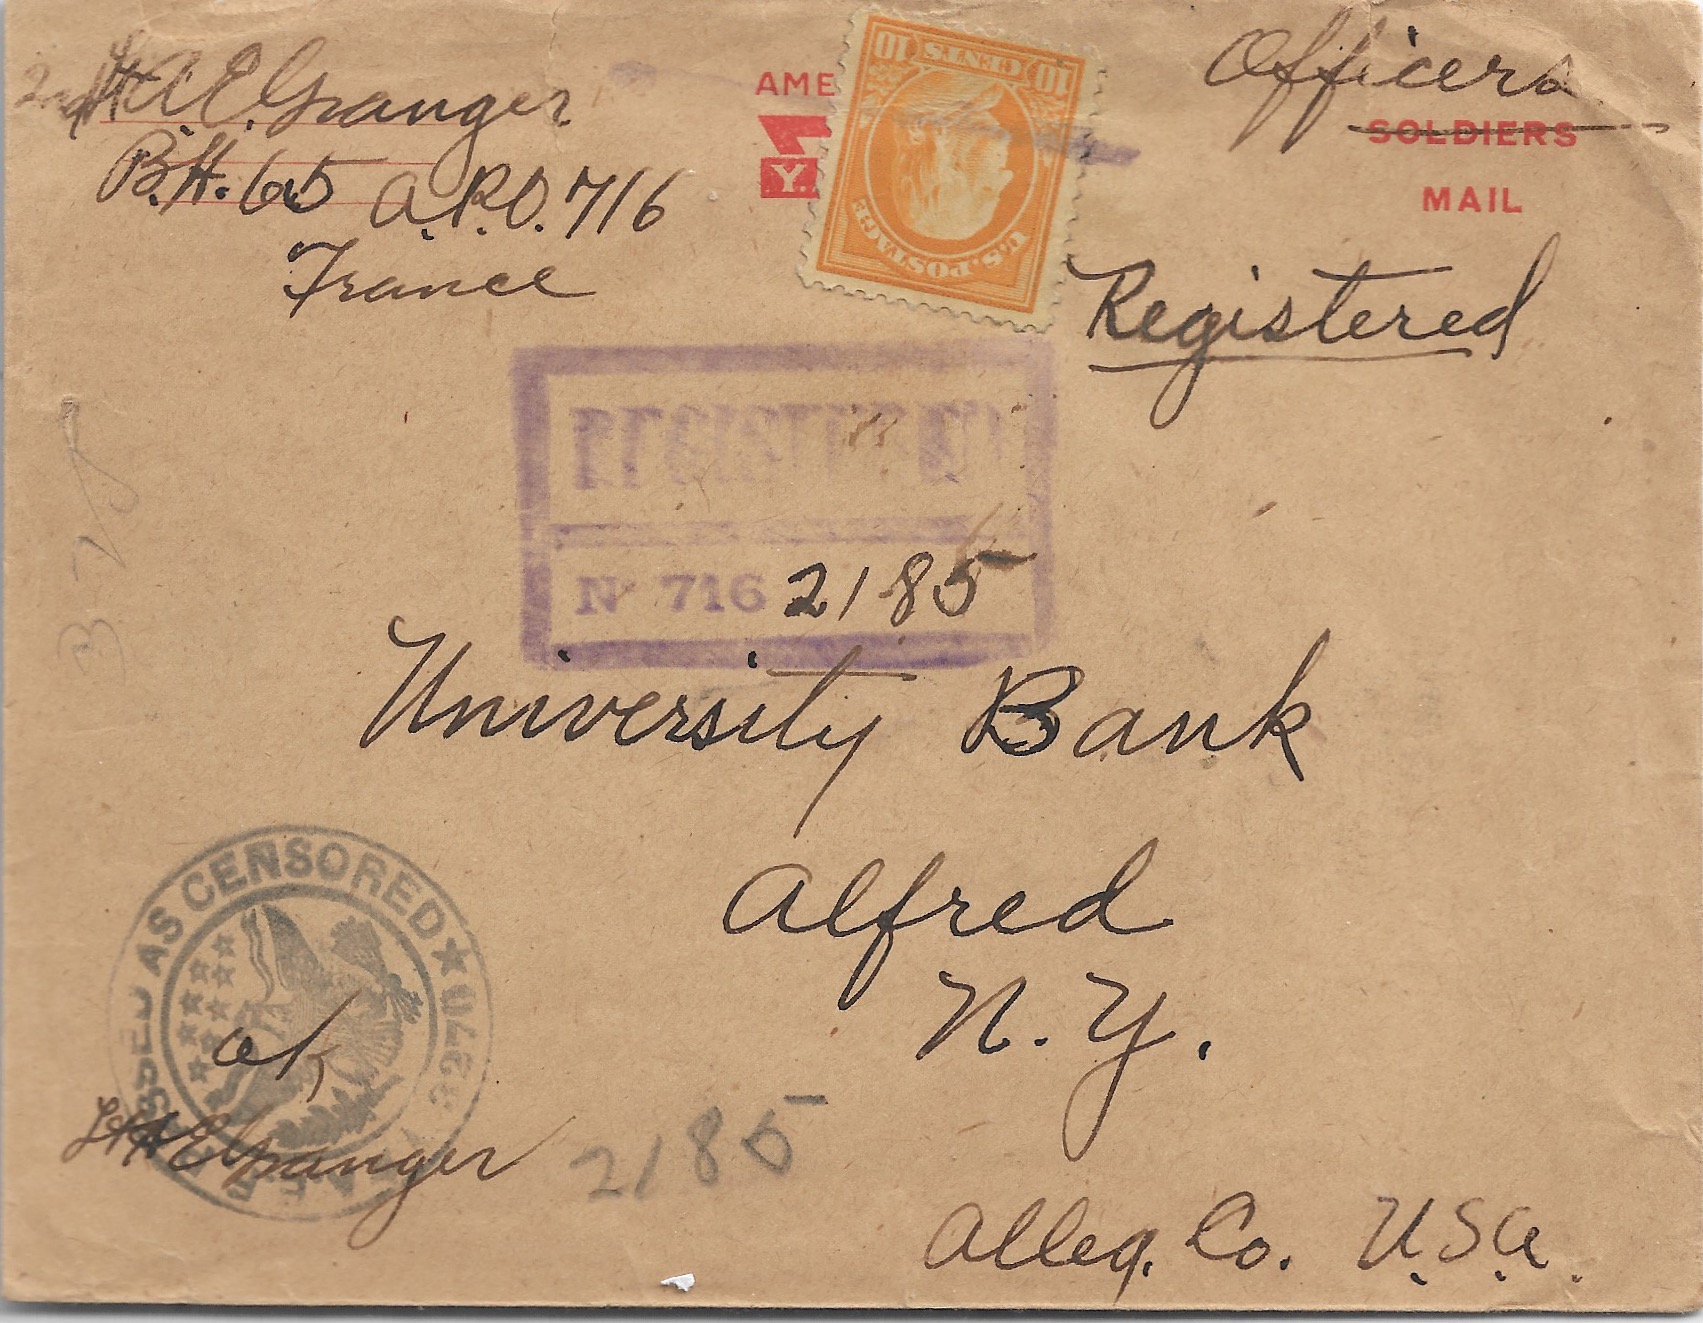 2nd Lt A. E. Granger
B.H. 65 A.P.O. 716
France
AME
Y.
10 CENTS 10
U.S. POSTAGE
Officers
SOLDIERS
MAIL
Registered
REGISTERED
No 716 2185
University Bank
Alfred
N.Y.
Alleg. Co. U.S.A.
AS CENSORED ★
A.E.F.
OK
Lt A E Granger
2185